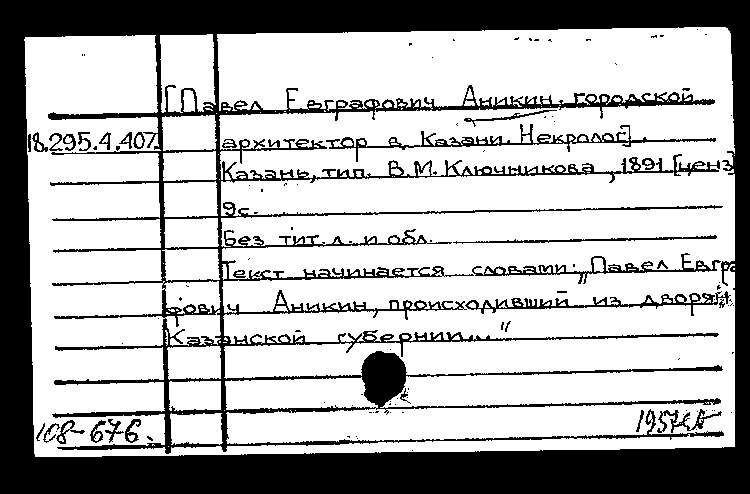 [Павел Евграфович Аникин, городской
18.295.4.407. архитектор в Казани. Некролог].
Казань, тип. В.М. Ключникова, 1891 [ценз]
9с.
Без тит. л. и обл.
Текст начинается словами: „Павел Евгра
фович Аникин, происходивший из дворян
Казанской губернии..."
108-676.